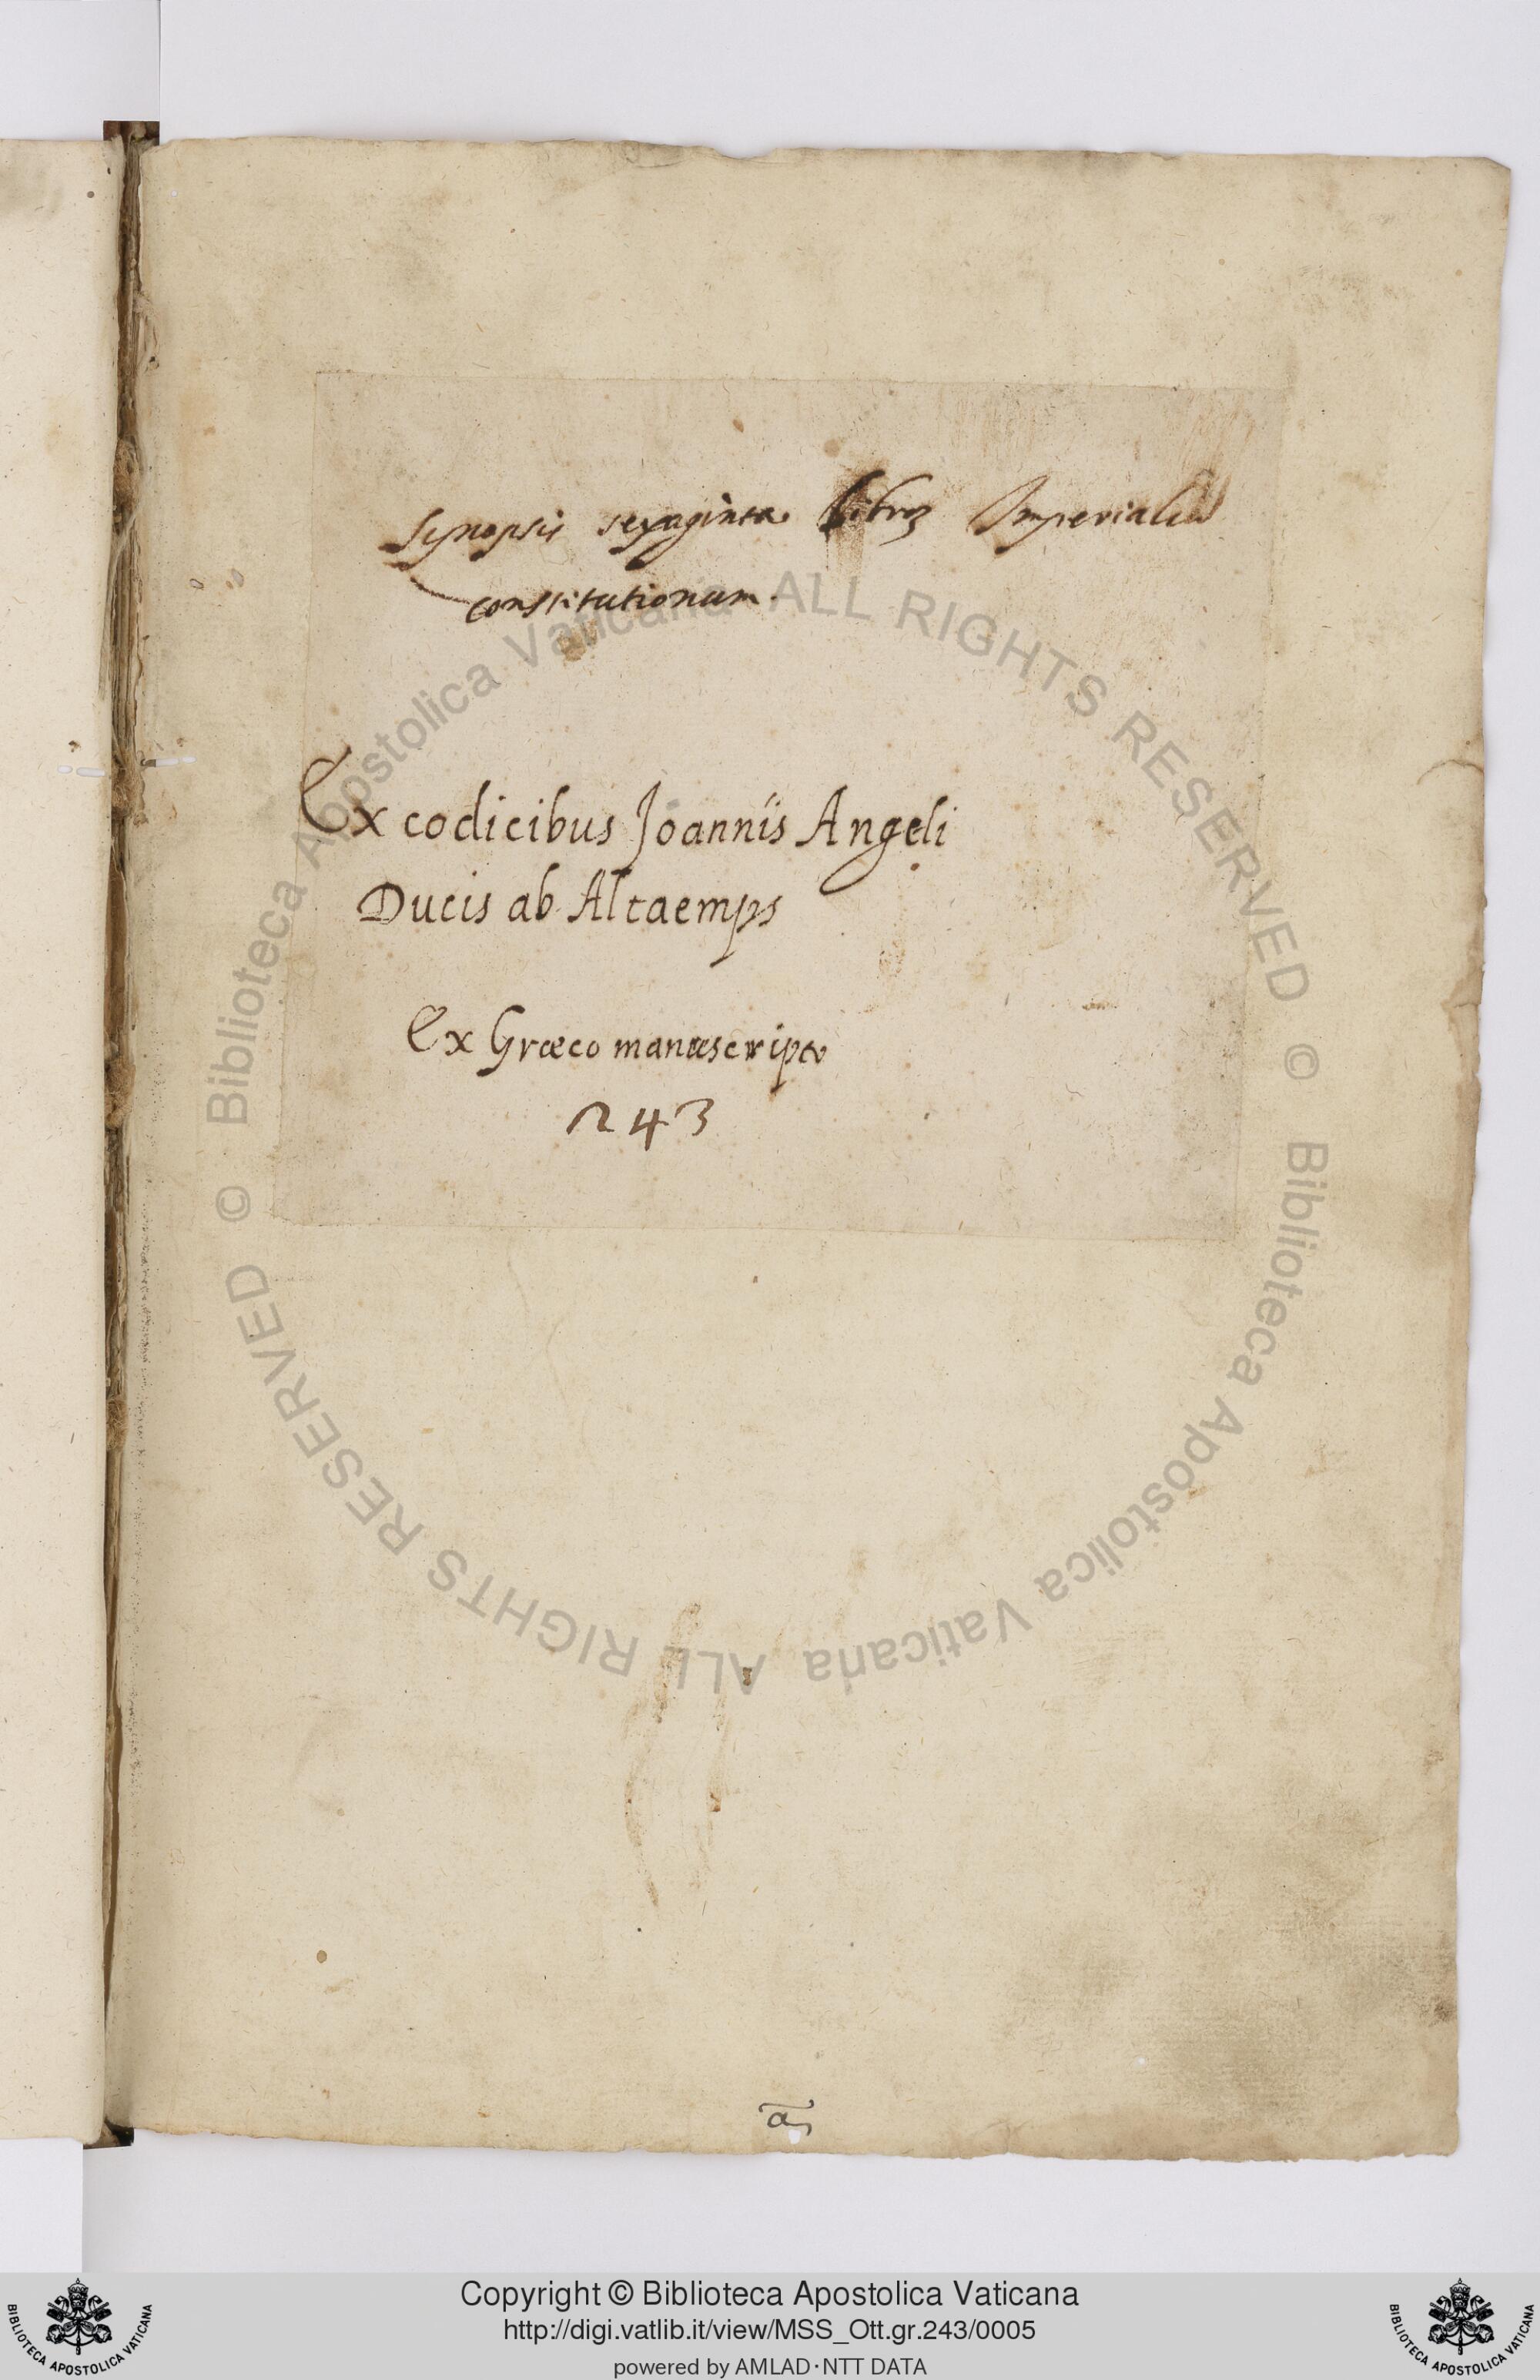 Synopsis sexaginta libroꝝ Imperialiũ
constitutionum.
Ex codicibus Joannis Angeli
Ducis ab Altaemps
Ex Græco manuscripto
243
a
© Biblioteca Apostolica Vaticana ALL RIGHTS RESERVED © Biblioteca Apostolica Vaticana ALL RIGHTS RESERVED
Copyright © Biblioteca Apostolica Vaticana
http://digi.vatlib.it/view/MSS_Ott.gr.243/0005
powered by AMLAD·NTT DATA
BIBLIOTECA APOSTOLICA VATICANA
BIBLIOTECA APOSTOLICA VATICANA